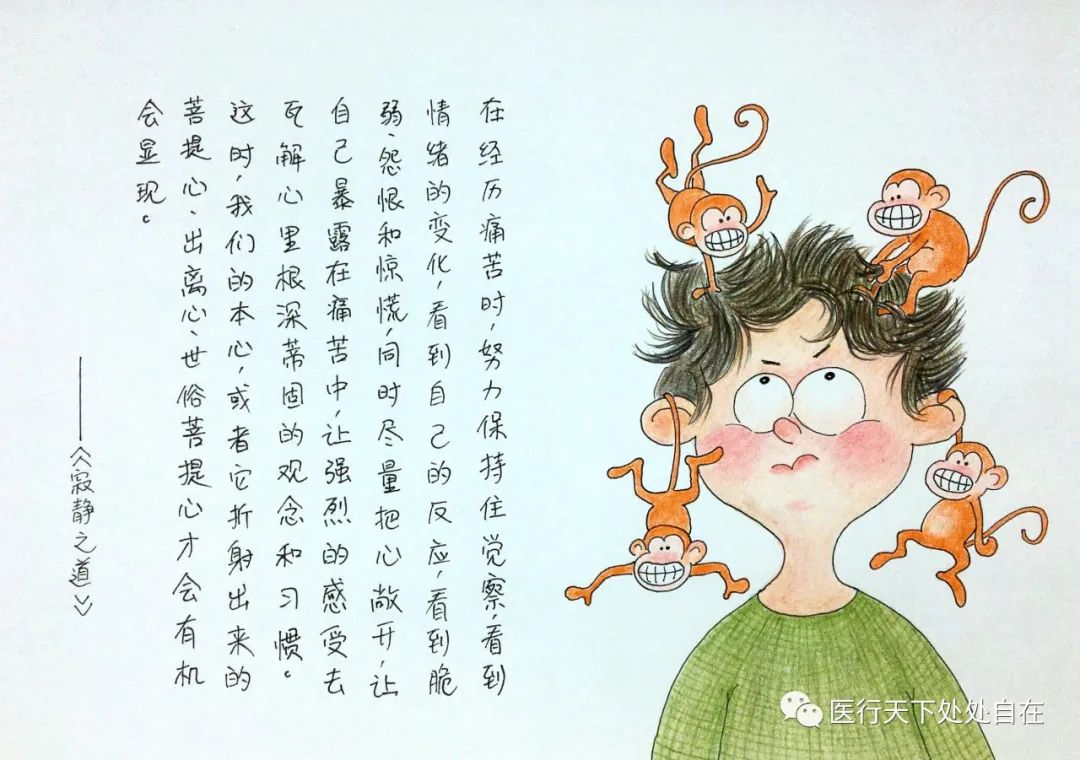 在经历痛苦时,努力保持住觉察,看到
情绪的变化,看到自己的反应,看到脆
弱、怨恨和惊慌,同时尽量把心敞开,让
自己暴露在痛苦中,让强烈的感受去
瓦解心里根深蒂固的观念和习惯。
这时,我们的本心,或者它折射出来的
菩提心、出离心、世俗菩提心才会有机
会显现。
——《寂静之道》
医行天下处处自在